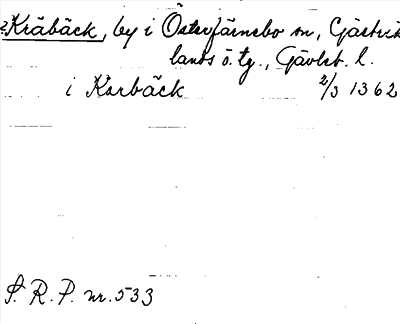 Kräbäck, by i Österfärnebo sn, Gästrik
lands ö. tg., Gävleb. l.
i Karbäck 2/3 1362
S. R. P. nr. 533